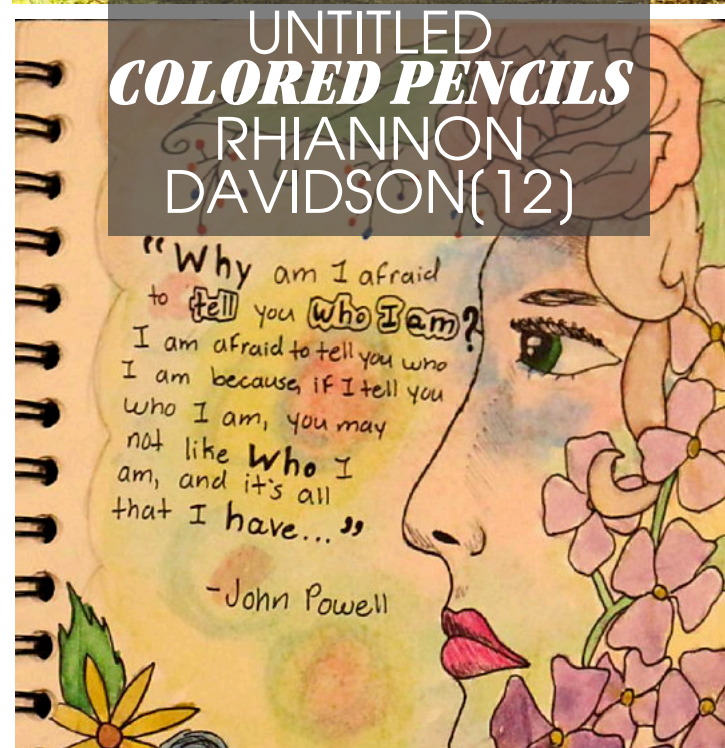 UNTITLED
COLORED PENCILS
RHIANNON
DAVIDSON(12)
“Why am I afraid
to tell you who I am?
I am afraid to tell you who
I am because, if I tell you
who I am, you may
not like who I
am, and it's all
that I have...”
-John Powell